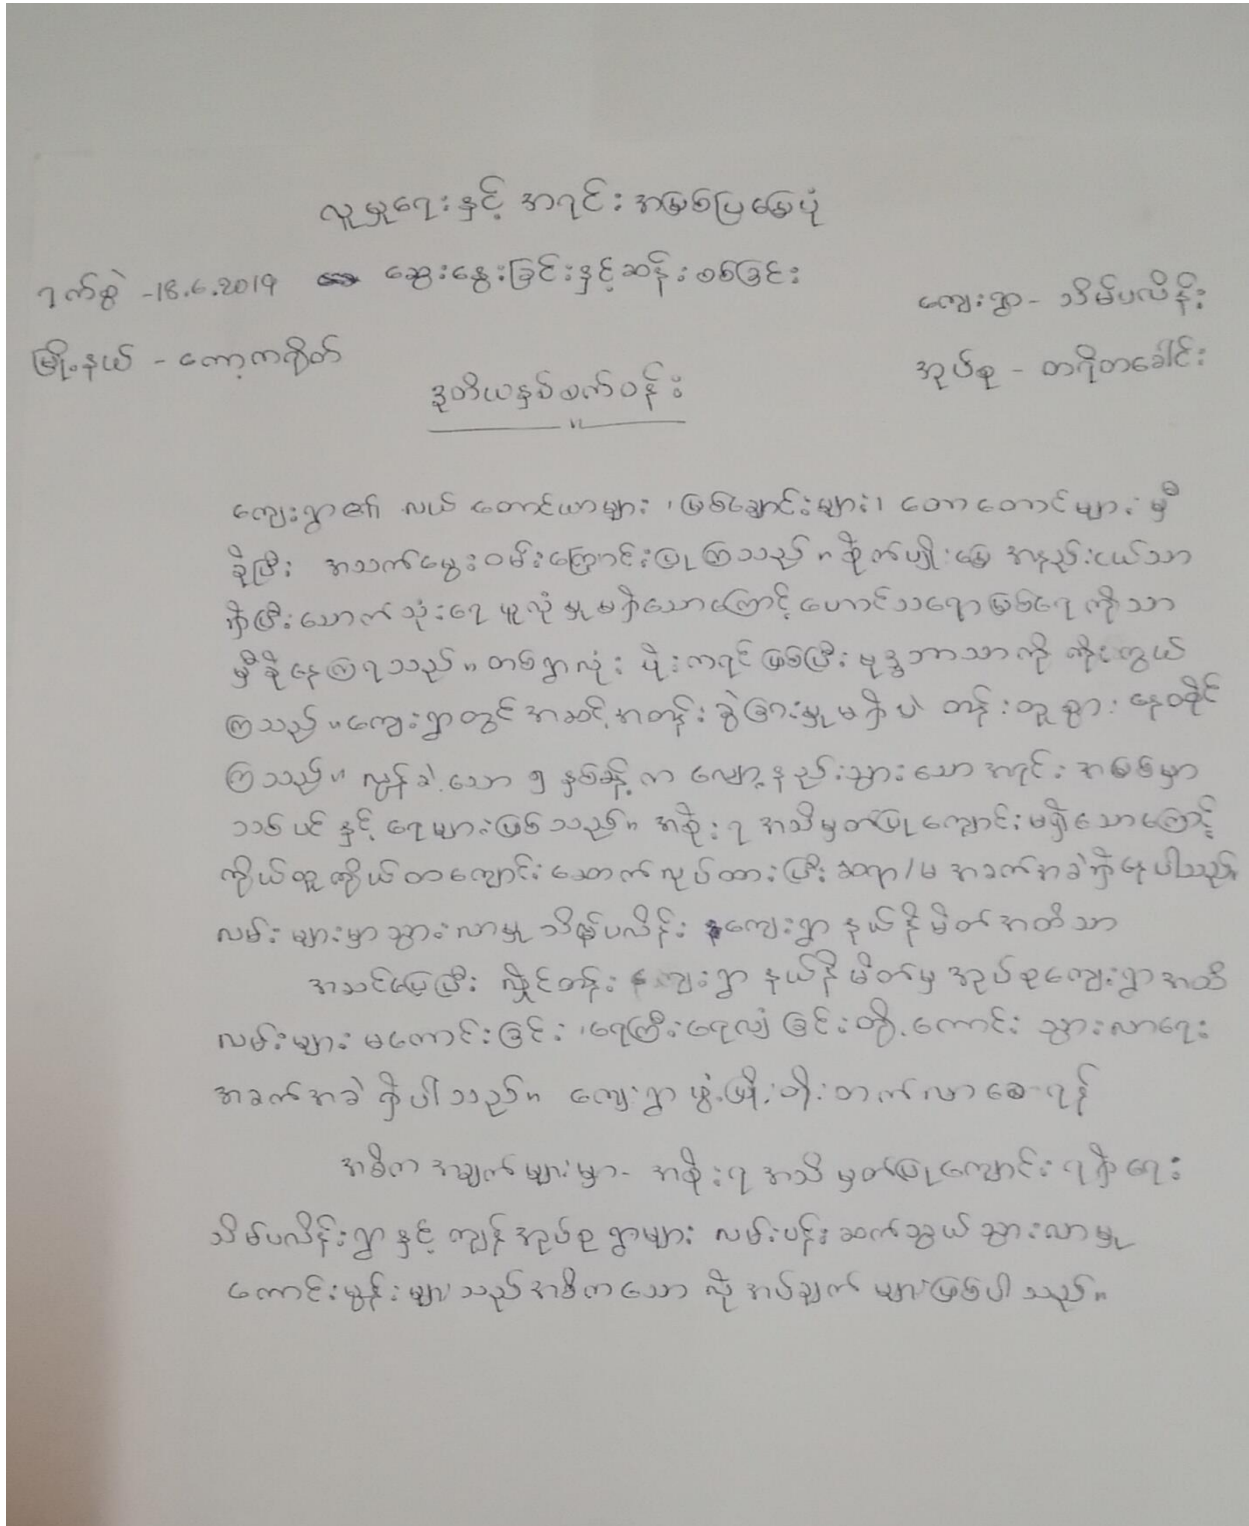 လူမှုရေးနှင့် အရင်းအမြစ်ပြမြေပုံ
ရက်စွဲ -18.6.2019 ဆွေးနွေးခြင်းနှင့်ဆန်းစစ်ခြင်း
ကျေးရွာ - သိမ်ပလိန်း
မြို့နယ် - ကော့ကရိတ်
အုပ်စု - တရိတခေါင်း
ဒုတိယနှစ်စက်ဝန်း
ကျေးရွာ၏ လယ် တောင်ယာများ ၊ မြစ်ချောင်းများ၊ တောတောင်များ မှီ
ခိုပြီး အသက်မွေးဝမ်းကြောင်းပြုကြသည်။ စိုက်ပျိုးမြေ အနည်းငယ်သာ
ရှိပြီး သောက်သုံးရေ ဖူလုံမှုမရှိသောကြောင့် ဟောင်သရောမြစ်ရေ ကိုသာ
မှီခိုနေကြရသည်။ တစ်ရွာလုံး ပိုးကရင်ဖြစ်ပြီး ဗုဒ္ဓဘာသာကို ကိုးကွယ်
ကြသည်။ ကျေးရွာတွင် အဆင့်အတန်း ခွဲခြားမှု မရှိပဲ တန်းတူစွာ နေထိုင်
ကြသည်။ လွန်ခဲ့သော ၅ နှစ်ခန့်က လျော့နည်းသွားသော အရင်းအမြစ်မှာ
သစ်ပင် နှင့် ရေများဖြစ်သည်။ အစိုးရ အသိမှတ်ပြုကျောင်း မရှိသောကြောင့်
ကိုယ်ထူကိုယ်ထကျောင်း ဆောက်လုပ်ထားပြီး ဆရာ/မ အခက်အခဲရှိနေပါသည်။
လမ်းများမှာ သွားလာမှု သိမ်ပလိန်း ကျေးရွာ နယ်နိမိတ်အထိသာ
အဆင်ပြေပြီး လှိုင်တန်း ကျေးရွာ နယ်နိမိတ်မှ အုပ်စုကျေးရွာအထိ
လမ်းများ မကောင်းခြင်း ၊ ရေကြီးရေလျှံ ခြင်းတို့ ကောင်း သွားလာရေး
အခက်အခဲ ရှိပါသည်။ ကျေးရွာ ဖွံ့ဖြိုးတိုးတက်လာစေရန်
အဓိက အချက်များမှာ - အစိုးရ အသိမှတ်ပြုကျောင်း ရရှိရေး
သိမ်ပလိန်းရွာ နှင့် ကျန်အုပ်စုရွာများ လမ်းပန်းဆက်သွယ် သွားလာမှု
ကောင်းမွန်းများသည် အဓိကသော လိုအပ်ချက် များဖြစ်ပါသည်။